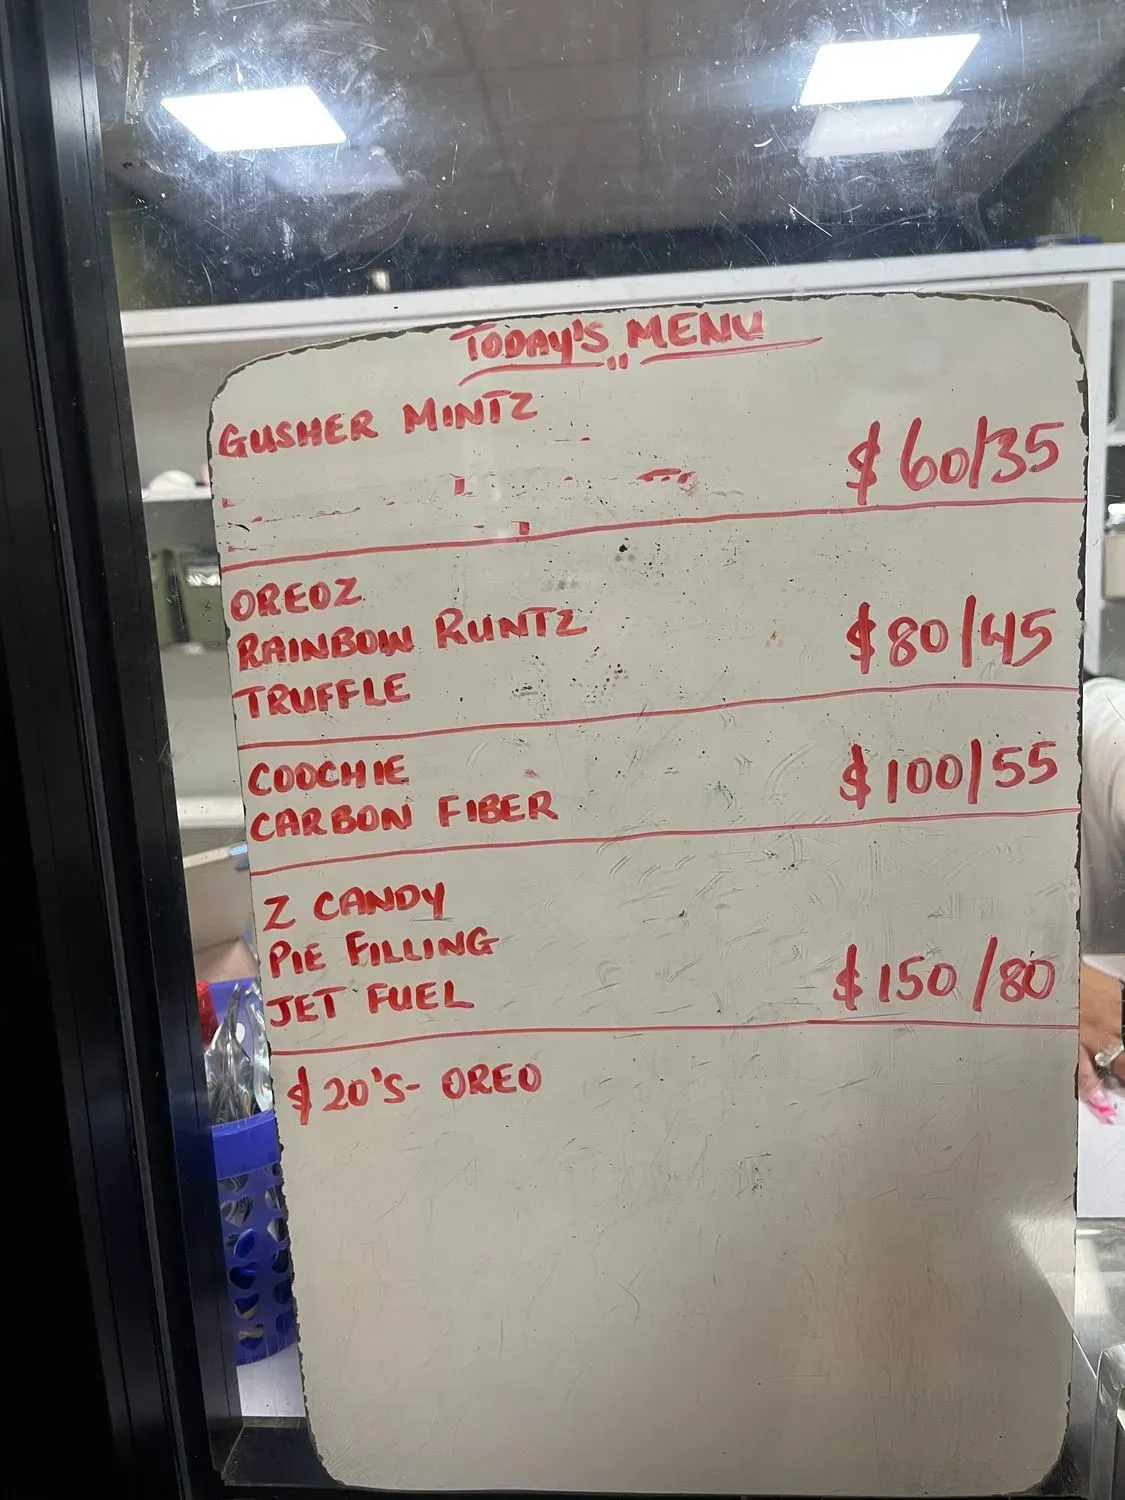 TODAY'S MENU
GUSHER MINTZ
$60/35
OREOZ
RAINBOW RUNTZ
$80/45
TRUFFLE
COOCHIE
$100/55
CARBON FIBER
Z CANDY
PIE FILLING
$150/80
JET FUEL
$20'S- OREO